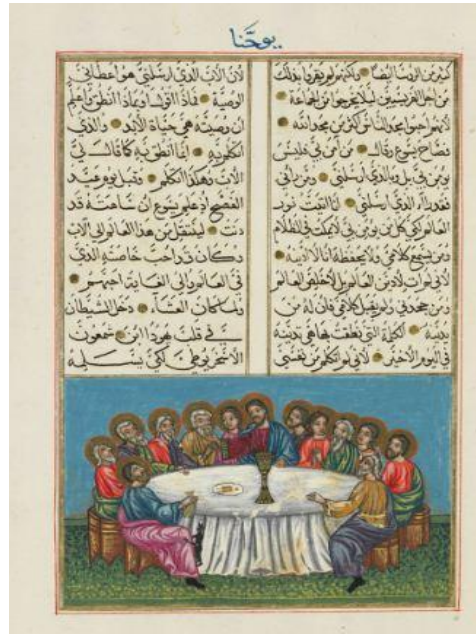 يوحَنا
كثير من الروسا ايضا ولكنهم لم يقروا بذلك
من اجل الفريسيين ليلا يخرجوا من الجماعة
لانهم احبوا مجد الناس اكثر من مجد الله
فصاح يسوع وقال من امن بي فليس
يومن بي بل وبالذي ارسلني ومن راني
فقد راى الذي ارسلني انا اتيت نور
العالم لكي كل من يومن بي لا يمكث في الظلام
ومن يسمع كلامي ولا يحفظه انا لا ادينه
لاني لم ات لادين العالم بل لاخلص العالم
ومن جحدني ولم يقبل كلامي فان له من
يدينه الكلمة التي نطقت بها هي تدينه
في اليوم الاخير لاني لم اتكلم من نفسي
لان الاب الذي ارسلني هو اعطاني
الوصية فماذا اقول او بماذا انطق واعلم
ان وصيته هي حياة الابد والذي
اتكلم به انما انطق به كما قال لي
الاب وهكذا اتكلم وقبل يوم عيد
الفصح اذ علم يسوع ان ساعته قد
دنت لينتقل من هذا العالم الى الاب
وكان قد احب خاصته الذي
في العالم والى الغاية احبهم
ولما كان العشاء دخل الشيطان
في قلب يهودا ابن شمعون
الاسخريوطي لكي يسلمه